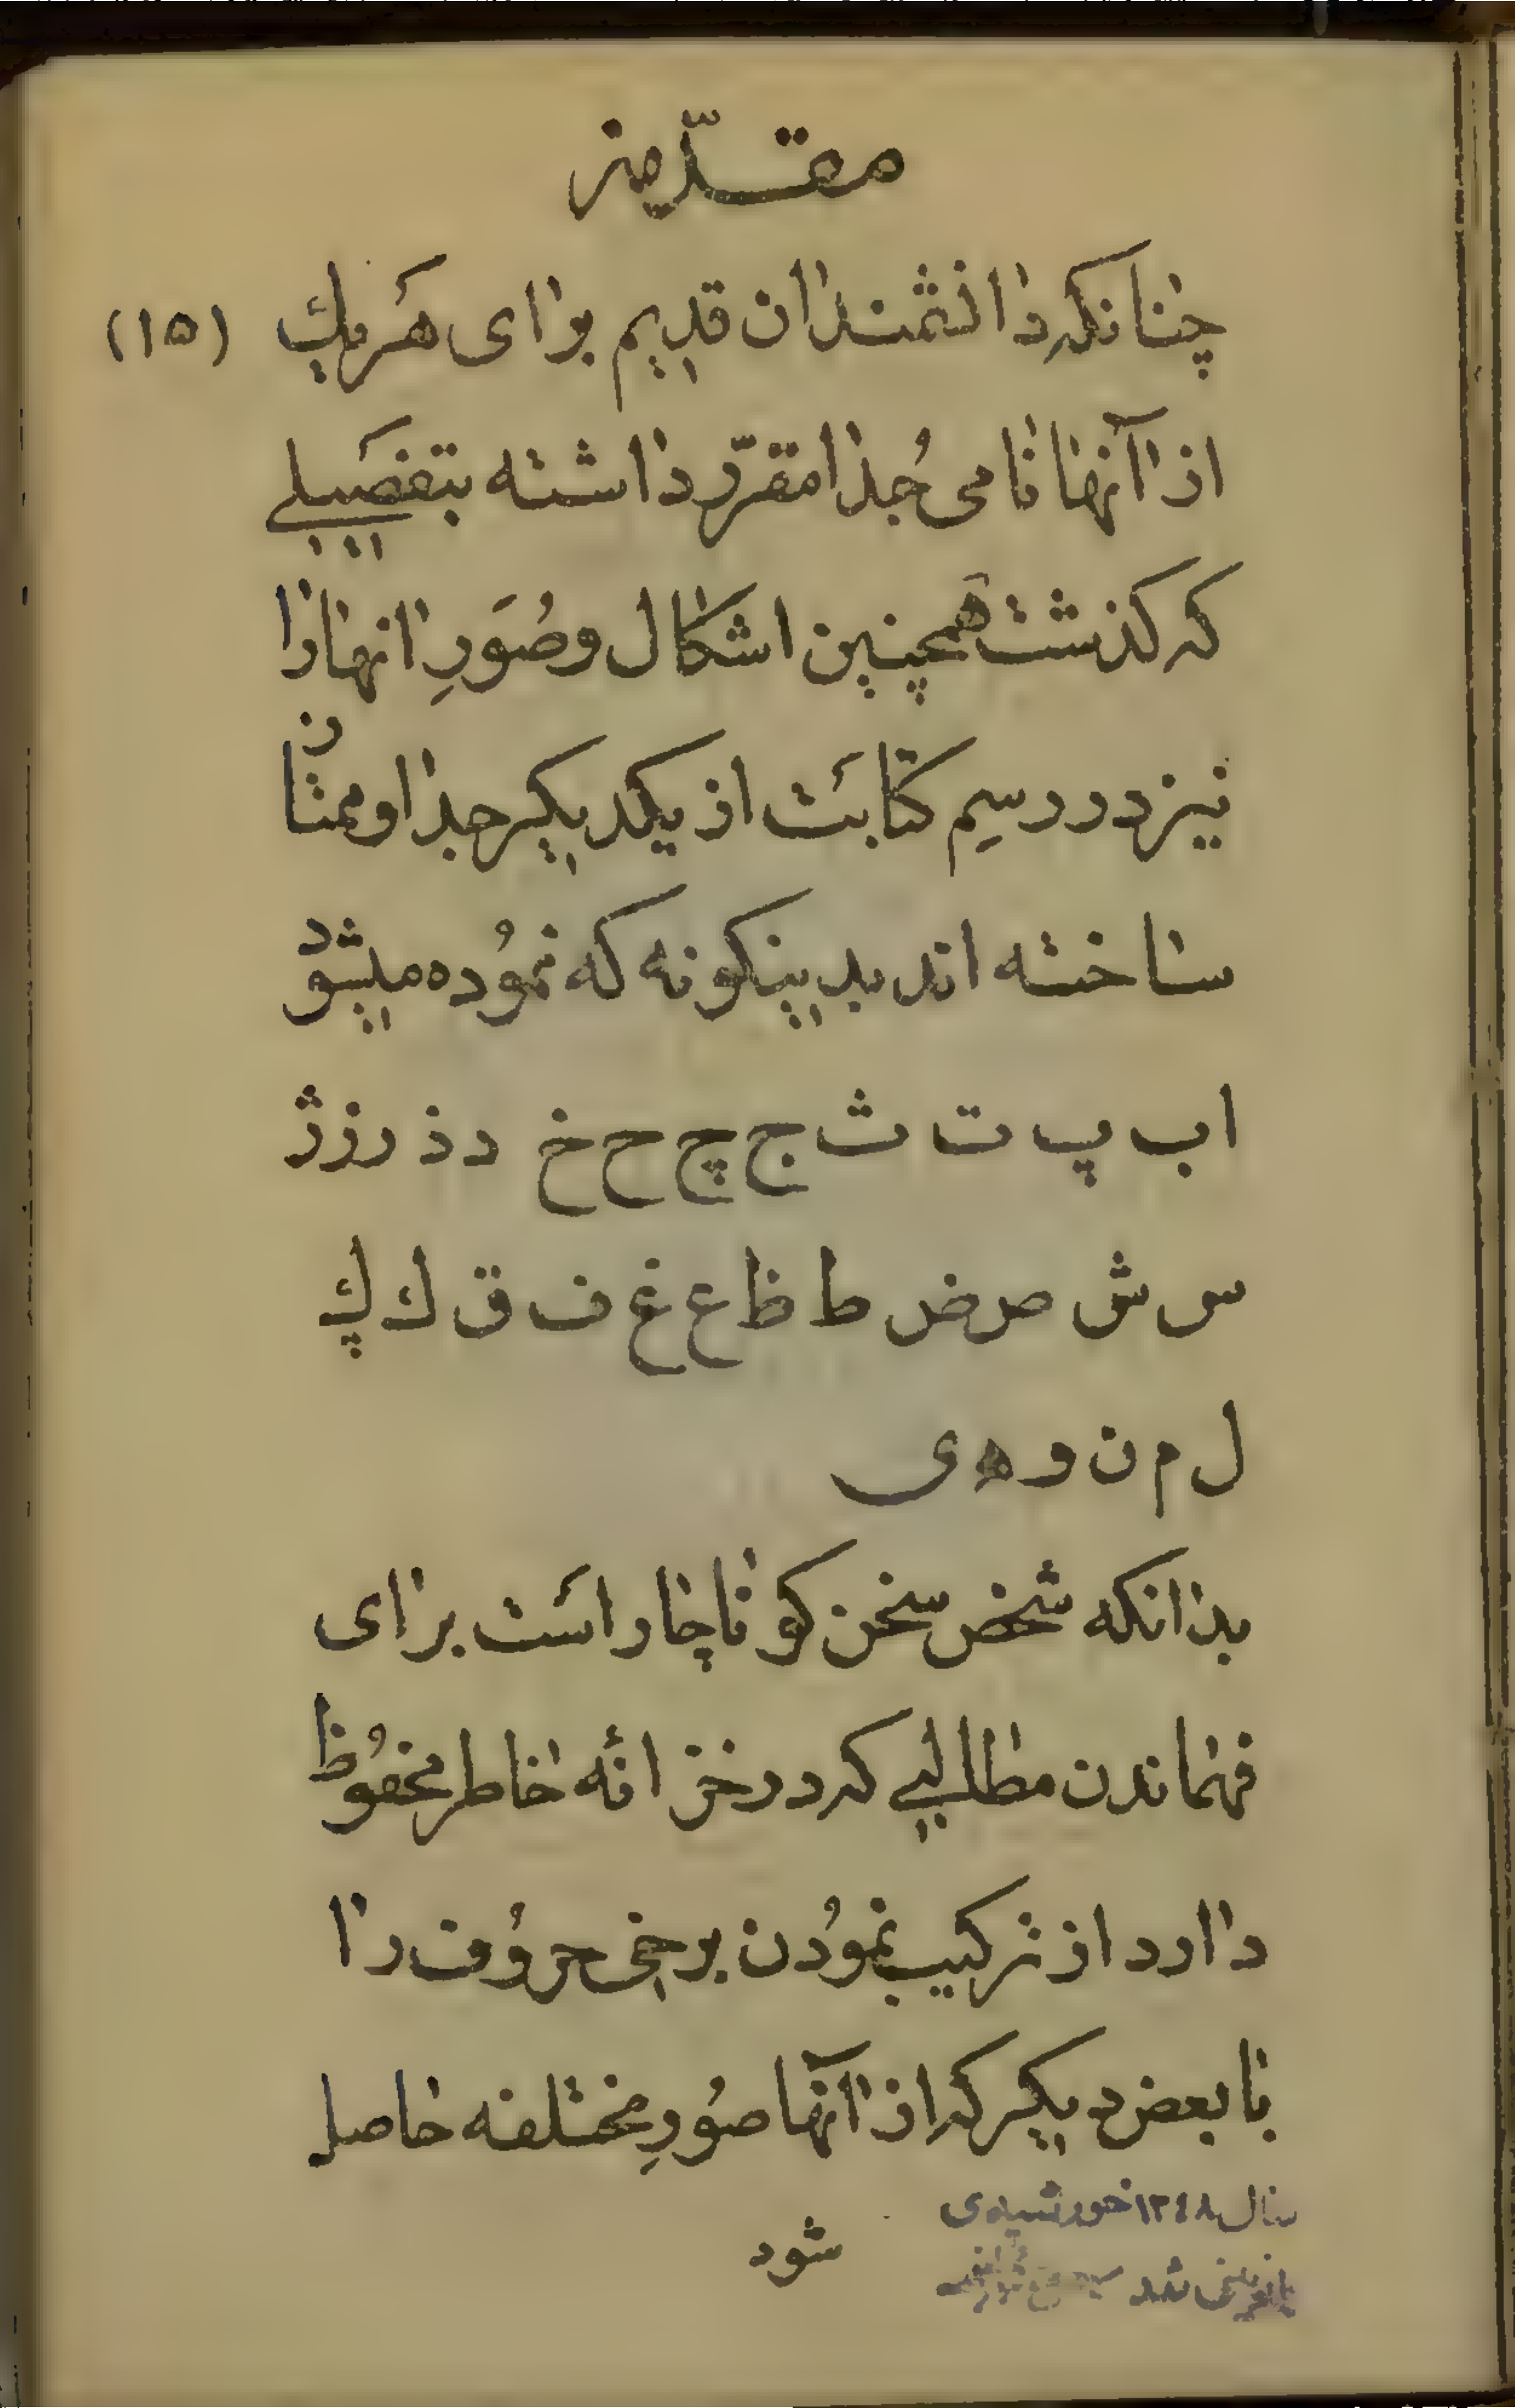 مقدّمه
چنانکه دانشمندان قدیم برای هَریك (۱۵)
از آنها نامی جُدا مقرّر داشته بتفصَیلے
که کذشت همچنین اشکال و صُوَرِ انها را
نیز در رسِم کتابَت از یکدیکر جدا و ممتاز
ساخته اند بدینکونه که نموُده میشود
ا ب پ ت ث ج چ ح خ د ذ ر ز ژ
س ش ص ض ط ظ ع غ ف ق ك ڮ
ل م ن و ه ی
بدانکه شخض سخن کو ناچار اسَت برای
فهماندن مطالبے که در خزانه خاطر محفوُظ
دارد از ترکیب نموُدن برخی حروُف را
با بعض دیکر که از آنها صُوَرِ مختلفه حاصل
شود
سال ۱۳٤۸ خورشیدی
بازبینی شد